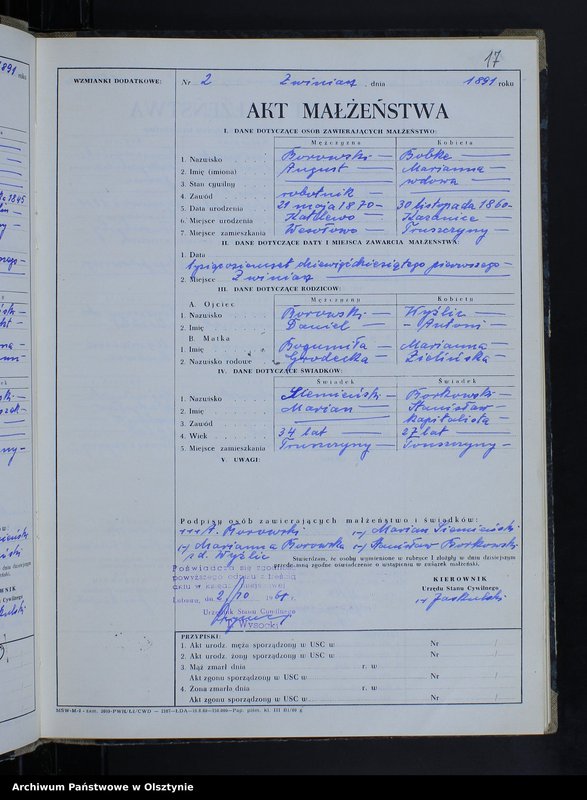 17
WZMIANKI DODATKOWE:
Nr 2 Zwiniarz, dnia 1891 roku
AKT MAŁŻEŃSTWA
I. DANE DOTYCZĄCE OSÓB ZAWIERAJĄCYCH MAŁŻEŃSTWO:
Mężczyzna Kobieta
1. Nazwisko Borowski Bobke
2. Imię (imiona) August Marianna
3. Stan cywilny wdowa
4. Zawód robotnik
5. Data urodzenia 21 maja 1870 30 listopada 1860
6. Miejsce urodzenia Katlewo Kazanice
7. Miejsce zamieszkania Wesołowo Truszczyny
II. DANE DOTYCZĄCE DATY I MIEJSCA ZAWARCIA MAŁŻEŃSTWA:
1. Data
tysiącosiemset dziewięćdziesiątego pierwszego
2. Miejsce Zwiniarz
III. DANE DOTYCZĄCE RODZICÓW:
Mężczyzny Kobiety
A. Ojciec
1. Nazwisko Borowski Wyżlic
2. Imię Daniel Antoni
B. Matka
1. Imię Bogumiła Marianna
2. Nazwisko rodowe Grodecka Zielińska
IV. DANE DOTYCZĄCE ŚWIADKÓW:
Świadek Świadek
1. Nazwisko Siemieński Borkowski
2. Imię Marian Stanisław
3. Zawód kapitalista
4. Wiek 34 lat 27 lat
5. Miejsce zamieszkania Truszczyny Truszczyny
V. UWAGI:
Podpisy osób zawierających małżeństwo i świadków:
+++ A. Borowski (-) Marian Siemieński
(-) Marianna Borowska (-) Stanisław Borkowski
zd. Wyżlic
Stwierdzam, że osoby wymienione w rubryce I złożyły w dniu dzisiejszym
przede mną zgodne oświadczenie o wstąpieniu w związek małżeński.
Poświadcza się zgodność
powyższego odpisu z treścią
aktu w księdze
KIEROWNIK
Urzędu Stanu Cywilnego
Lubawa, dn. 2/10 1961 r.
(-) Jaskulski
Urzędnik Stanu Cywilnego
Wysocki
PRZYPISKI:
1. Akt urodz. męża sporządzono w USC w Nr /
2. Akt urodz. żony sporządzono w USC w Nr /
3. Mąż zmarł dnia r. w
Akt zgonu sporządzono w USC w Nr /
4. Żona zmarła dnia r. w
Akt zgonu sporządzono w USC w Nr /
Archiwum Państwowe w Olsztynie